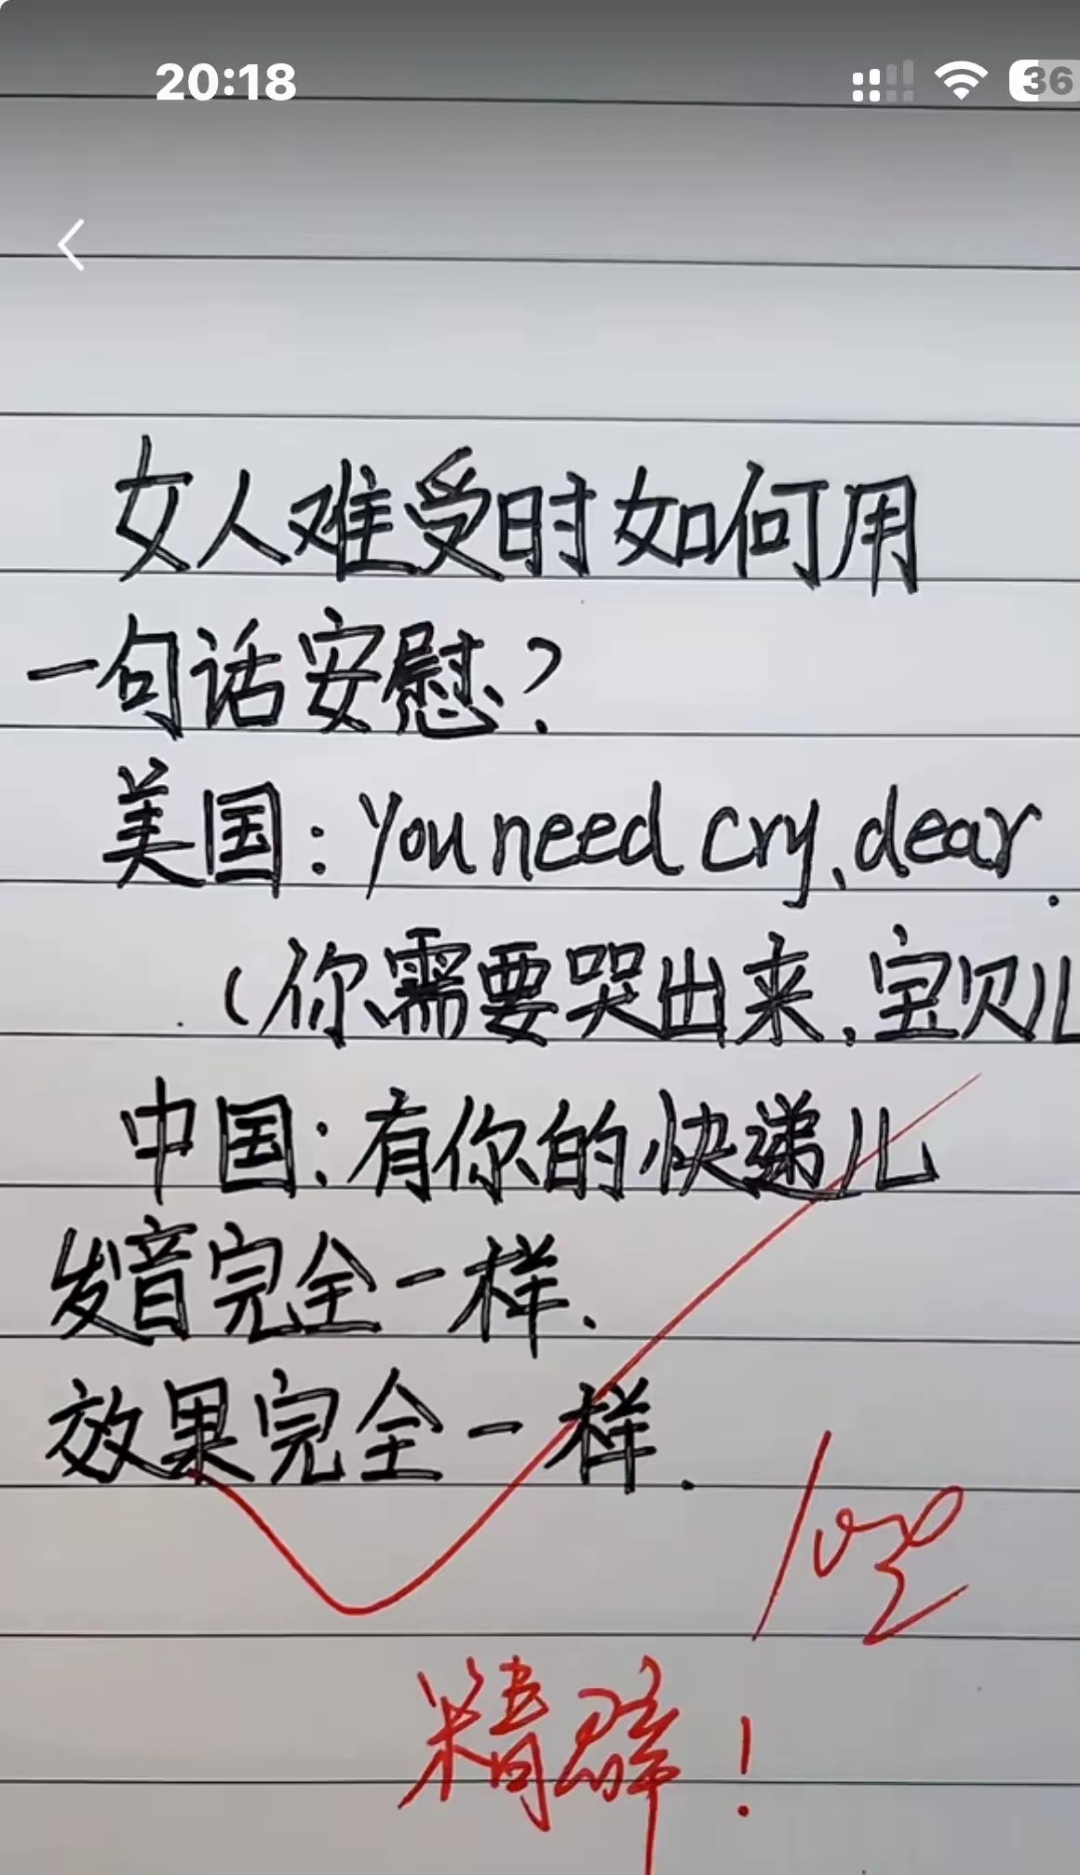 20:18
36
女人难受时如何用
一句话安慰?
美国: You need cry, dear.
(你需要哭出来,宝贝儿
中国:有你的快递儿
发音完全一样、
效果完全一样.
100
精辟!